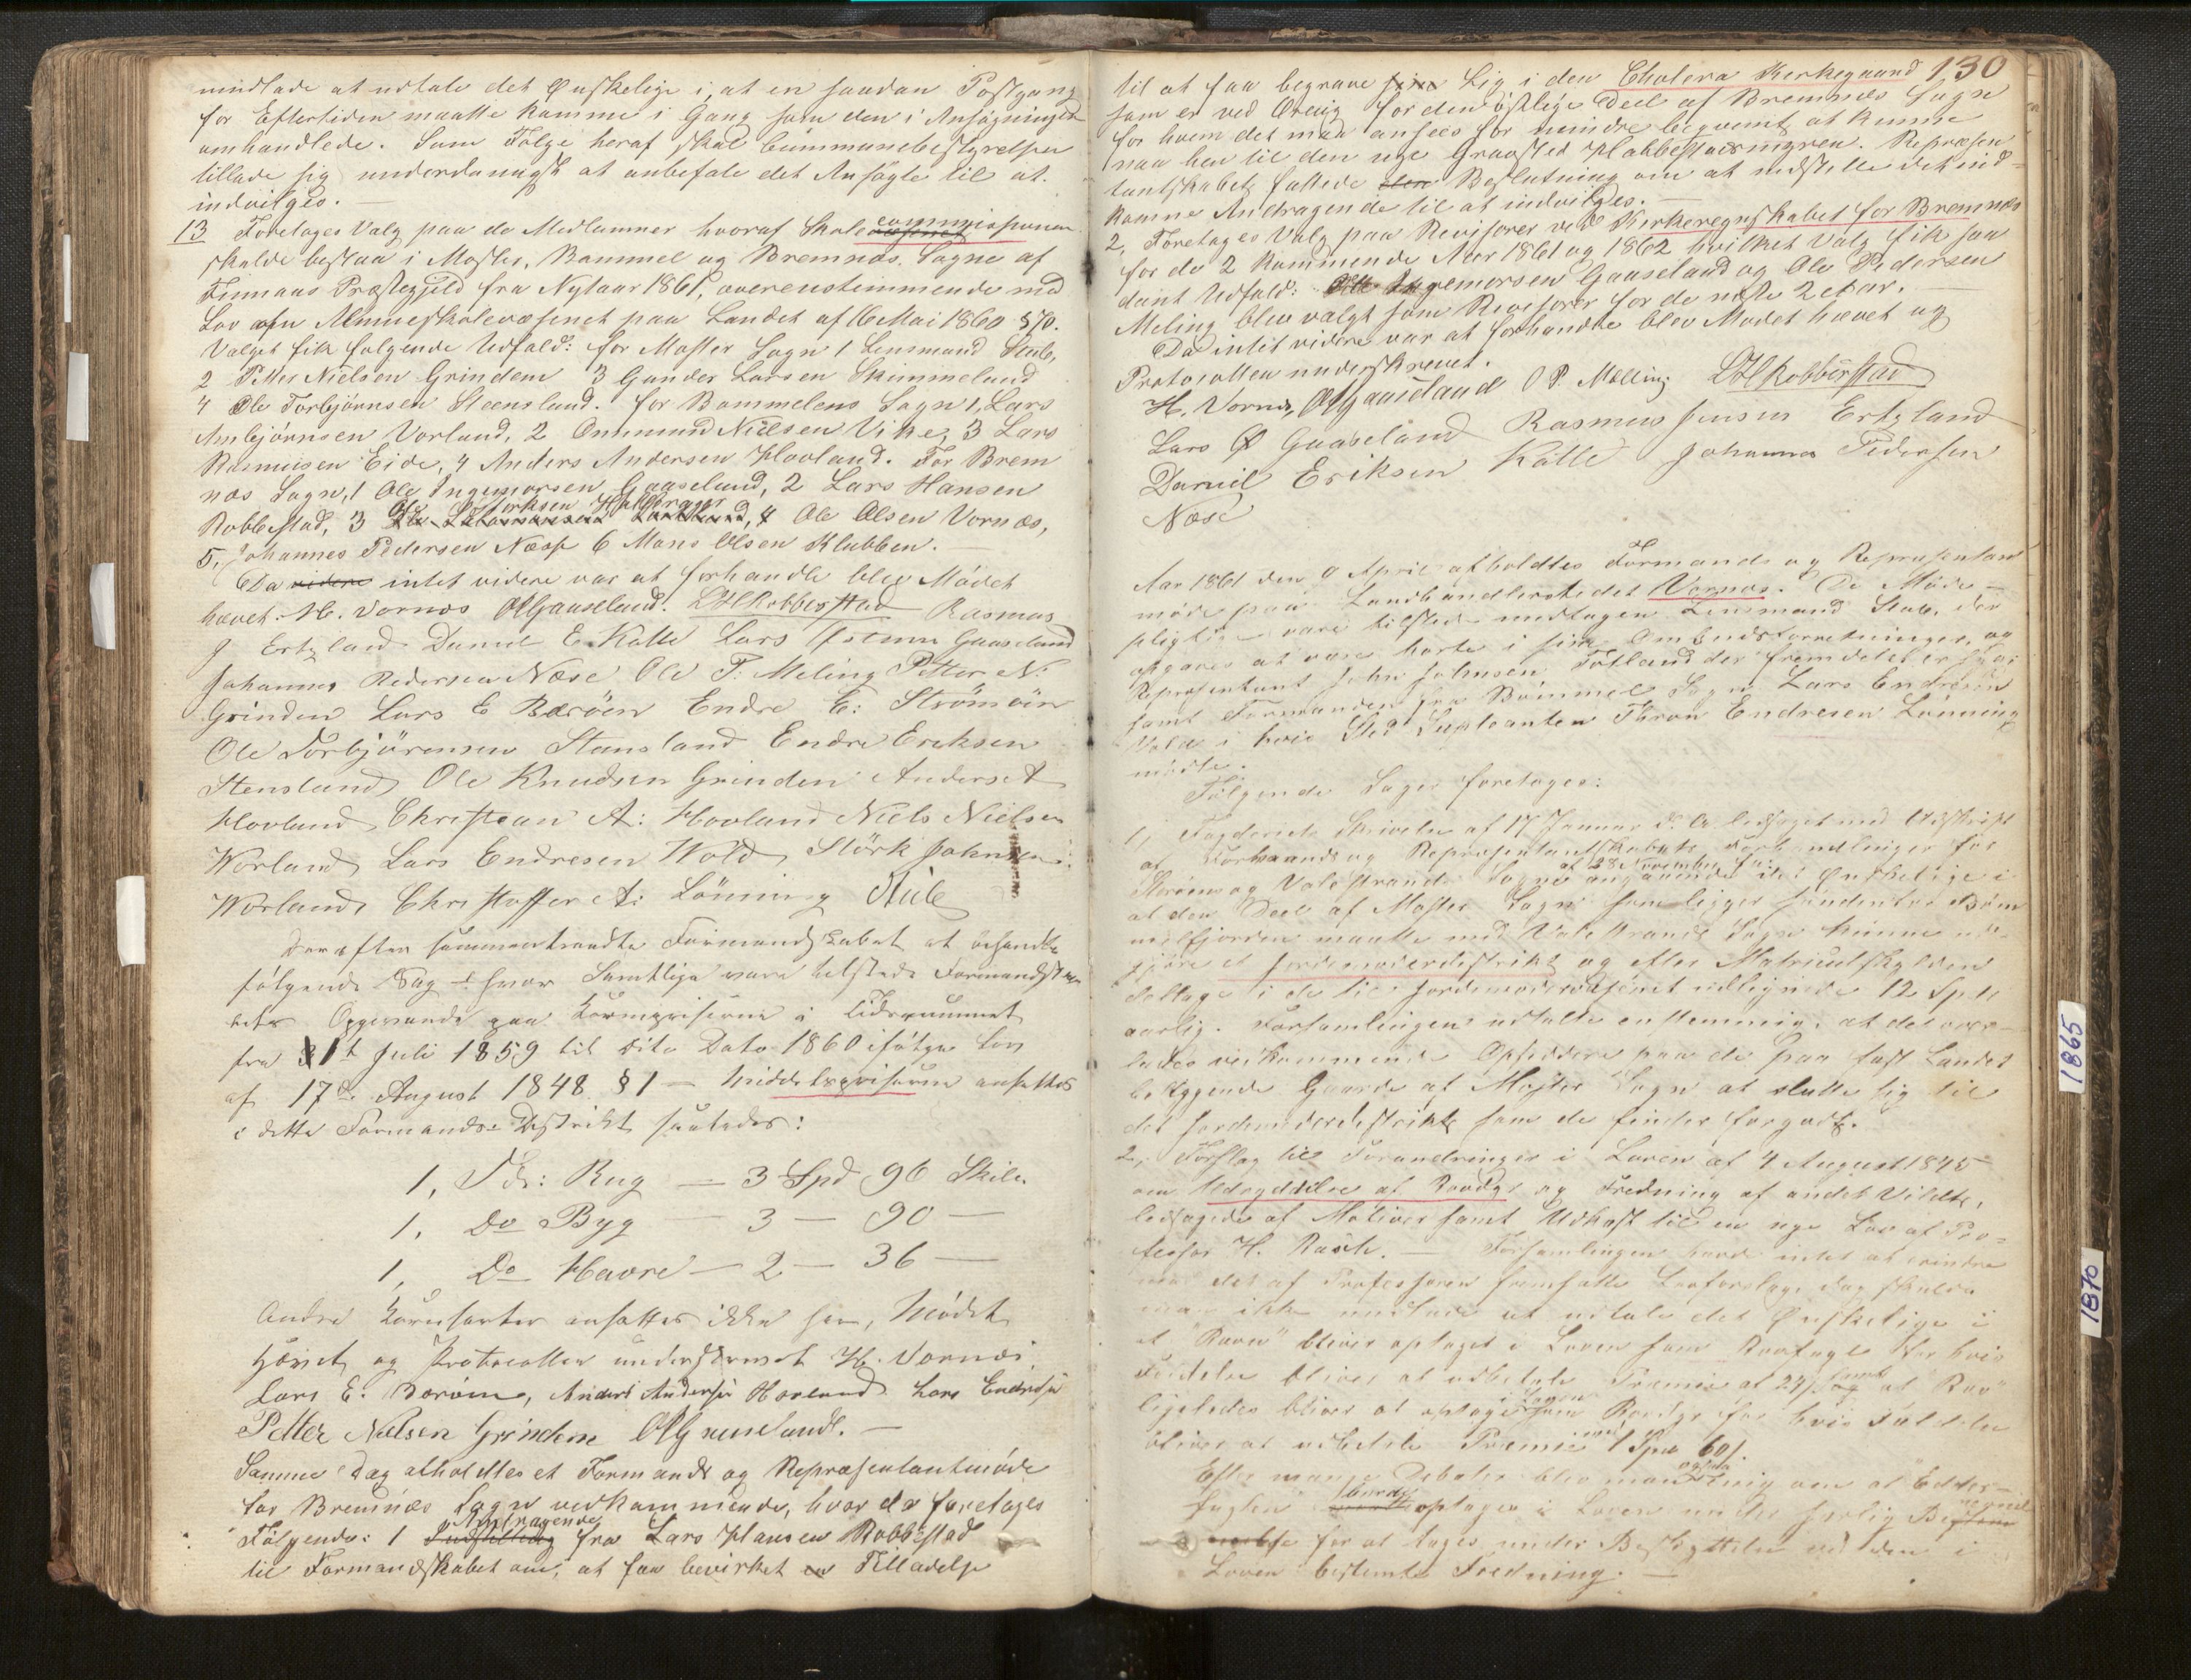 undlade at udtale det Ønskelige i, at en saadan Postgang
for Eftertiden maatte komme i Gang som den i Ansøgningen
omhandlede. Som Følge heraf skal Communebestyrelsen
tillade sig underdanigst at anbefale det Ansøgte til at
indvilges. —
13 Foretages Valg paa de Medlemmer hvoraf Skolecommissionen
skulde bestaa i Moster, Bømmel og Bremnæs Sogne af
Finnaas Præstegjeld fra Nytaar 1861, overensstemmende med
Lov om Almueskolevæsenet paa Landet af 16 Mai 1860 § 70.
Valget fik følgende Udfald: for Moster Sogn 1 Lensmand Stub,
2 Petter Nielsen Grinden 3 Gunder Larsen Skimmeland
4 Ole Torbjørnsen Steensland. for Bømmelens Sogn 1, Lars
Ambjørnsen Vorland, 2 Onnmund Nielsen Vike, 3 Lars
Rasmusen Eide, 4 Anders Andersen Hovland. For Brem
næs Sogn, 1 Ole Ingemorsen Gaaseland, 2 Lars Hansen
Robbestad, 3 Ole Størksen Hallarager, 4 Ole Olsen Vornæs,
5, Johannes Pedersen Næse 6 Mons Olsen Klubben.
Da videre intet videre var at forhandle blev Mødet
hævet. H. Vornæs OIGaaseland. LHRobbestad Rasmus
J Ertzland Daniel E. Kalle Lars Østmn Gaaseland
Johannes Pedersen Næse Ole P. Meling Petter N.
Grinden Lars E Bærøen Endre E: Strömöen
Ole Torbjörensen Stensland Endre Eriksen
Stensland Ole Knudsen Grinden Anders A
Hovland Christean A: Hovland Niels Nielsen
Worland Lars Endresen Wold, Störk Johnsen
Worland Christoffer A: Lönning Stub
Derefter sammentraadte Formandskabet at behandle
følgende Sag — hvor Samtlige vare tilstede Formandska
bets Opgivende paa Kornpriserne i Tidsrummet
fra 1st Juli 1859 til dito Dato 1860 ifølge Lov
af 17de August 1848 § 1 — Middelspriserne ansættes
i dette Formands-Distrikt saaledes:
1, Tde: Rug — 3 Spd 96 Skill.
1, Do Byg — 3 — 90 —
1, Do Havre — 2 — 36 —
Andre Kornsorter ansættes ikke her, Mødet
hævet og Protocollen underskrevet H. Vornæs
Lars E. Bærøen, Anders Andersen Hovland Lars Endresen
Petter Nielsen Grinden OIGaaseland. —
Samme Dag afholdtes et Formands og Repræsentantmøde
for Bremnæs Sogn vedkommende, hvor da foretages
Følgende: 1 Andragende fra Lars Hansen Robbestad
til Formandskabet om, at faa bevirket en Tilladelse
130
til at faa begrave sine Lig i den Cholera Kirkegaard
som er ved Øreviig for den østlige Deel af Bremnæs Sogn
for hvem det maa ansees for mindre beqvemt at kunne
naa hen til den nye Gravsted Habbestadmyren. Repræsen
tantskabet fattede den Beslutning om at indstille det ind=
komne Andragende til at indvilges. —
2, Foretages Valg paa Revisorer ved Kirkeregnskabet for Bremnæs
for de 2 kommende Aar 1861 og 1862 hvilket Valg fik saa
dant Udfald: Ole Ingemorsen Gaaseland og Ole Pedersen
Meling blev valgt som Revisorer for de næste 2de Aar. —
Da intet videre var at forhandle blev Mødet hævet og
Protocollen underskrevet.
H. Vornæs, OIGaaseland O P. Mælling LHRobberstad
Lars Ø Gaaseland Rasmus Jensen Ertzland
Daniel Eriksen Kalle Johannes Pedersen
Næse
Aar 1861 den 9 April afholdtes Formands og Repræsentan
møde paa Landhandlerstedet Vornæs. De Møde-
pligtige vare tilstede undtagen Lensmand Stub, der
opgaves at være borte i sine Ombudsforretninger, og
Repræsentant John Johnsen Totland der fremdeles er syg;
samt Formanden fra Bömmel Sogn Lars Endresen
Vold i hvis Sted Supleanten Thron Endresen Lønning
mödte.
Følgende Sager foretages:
1, Fogderiets Skrivelse af 17 Januar d. A. ledsaget med Udskrift
af Formands og Repræsentantskabets Forhandlinger for
Størens og Valestrands Sogne af 28 November f. A: angaaende det Ønskelige i
at den Deel af Moster Sogn som ligger søndenfor Bøm
melfjorden maatte med Valestrands Sogn kunne ud-
gjøre et Jordemoderdistrikt og efter Matriculskylden
deltage i de til Jordemodervæsenet udlignede 12 Spd
aarlig. Forsamlingen udtalte enstemmig, at det over-
lades vedkommende Opsiddere paa de paa fast Landet
beliggende Gaarde af Moster Sogn at slutte sig til
det Jordemoderdistrikt som de finder forgodt.
2, Forslag til Forandringer i Loven af 4 August 1845
om Udryddelse af Rovdyr og Fredning af andet Vildt,
ledsaget af Motiver samt Udkast til en nye Lov af Pro=
fessor H. Rasch. — Forsamlingen havde intet at erindre
mod det af Professoren fremsatte Lovforslag, dog skulde
man ikke undlade at udtale det Ønskelige i
at "Ravn" bliver optaget i Loven som Rovfugl for hvis
Fældelse bliver at udbetale Præmie af 24 s samt at "Ræv"
ligeledes bliver at optages i Loven som Rovdyr for hvis Fældelse
bliver at udbetale Præmie med 1 Spd 60 s.
Efter mange Debatter blev man ogsaa Enig om at "Edder-
fuglen" burde optages i Loven under særlig
for at tages under Beskyttelse ved den i
Loven bestemte Fredning. —
1865
1870